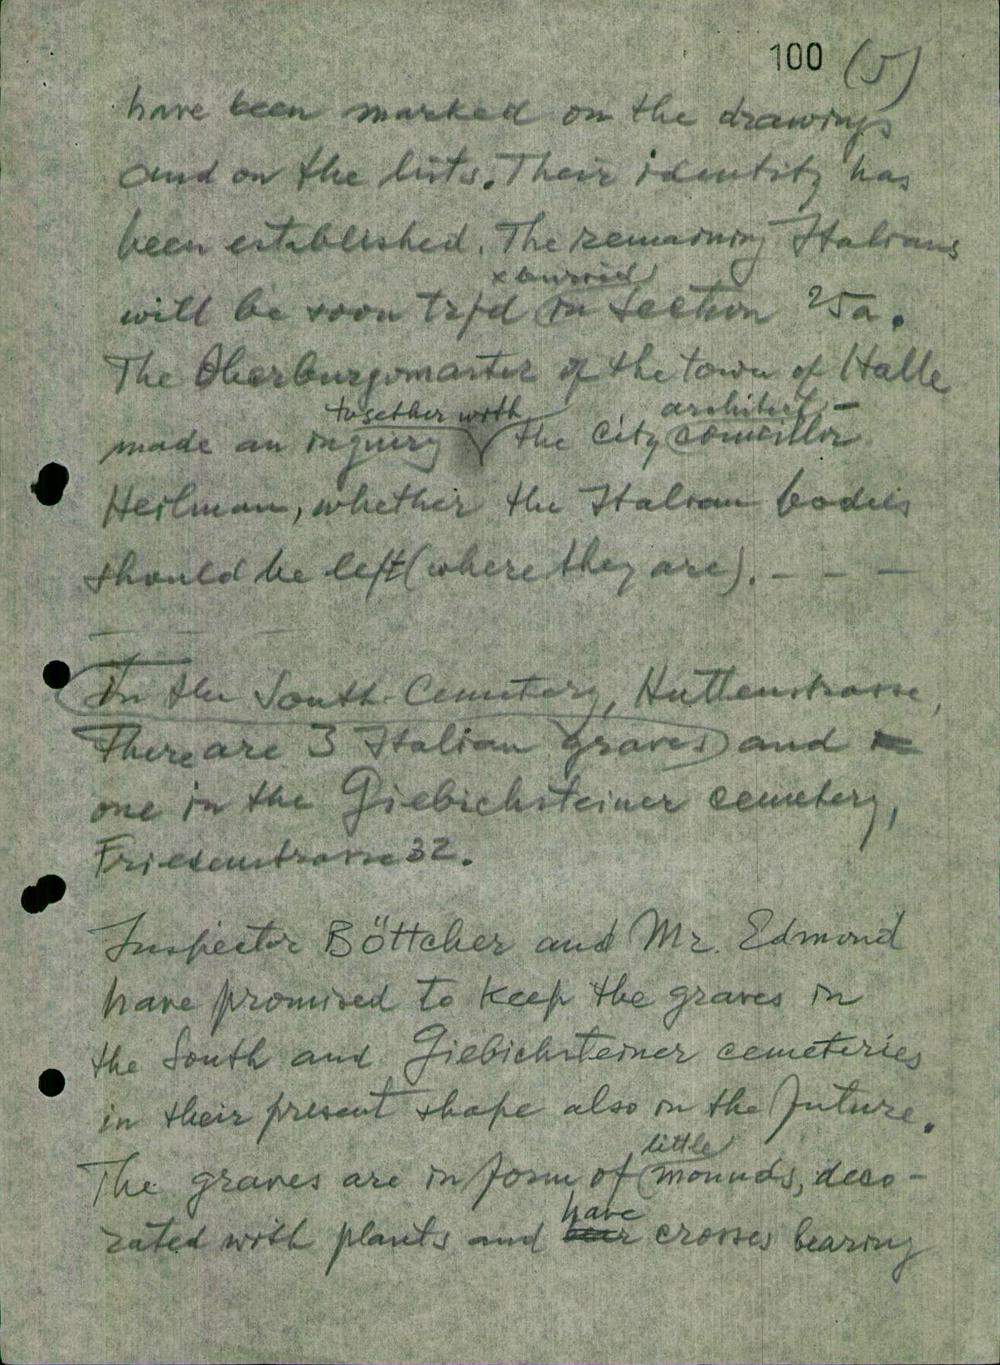 100 (5)
have been marked on the drawings
and on the lists. Their identity has
been established. The remaining Italians
x burried
will be soon trfd in Section 25a.
The Oberburgomaster of the town of Halle
together with architect -
made an inquiry the city councillor
Heilman, whether the Italian bodies
should be left (where they are). - - -
In the South-Cemetery, Huttenstrasse,
There are 3 Italian graves) and
one in the Giebichsteiner cemetery,
Friesenstrasse 32.
Inspector Böttcher and Mr. Edmond
have promised to keep the graves in
the South and Giebichsteiner cemeteries
in their present shape also in the future.
little
The graves are in form of mounds, deco-
have
rated with plants and bear crosses bearing